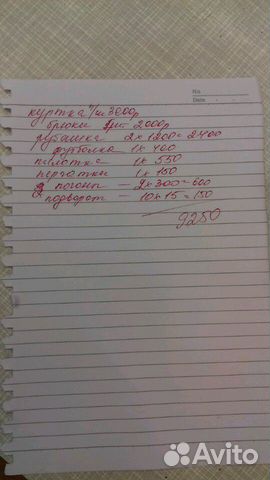 No.
Date
куртка п/ш 3000р
брюки 2000р
рубашка 2х1200=2400
футболка 1х400
пилотка 1х550
перчатки 1х150
погоны — 2х300=600
подворот — 10х15=150
9250
Avito